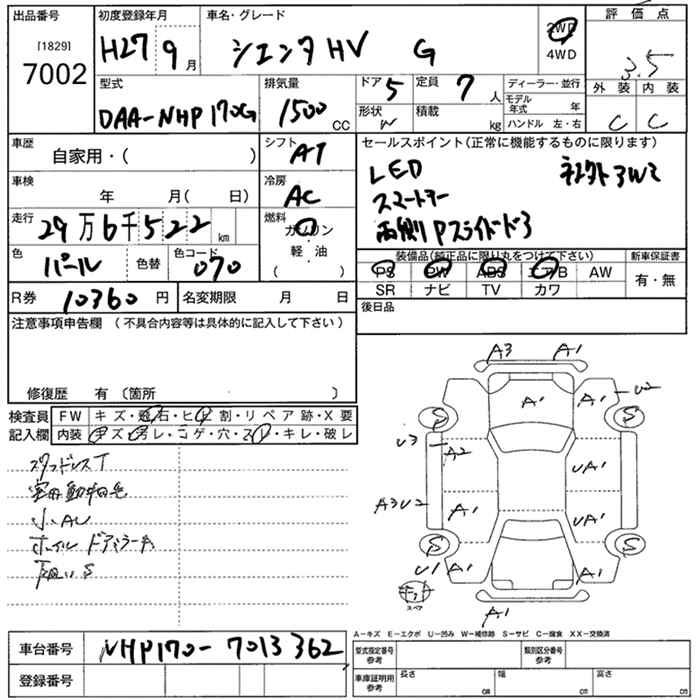 出品番号
[1829]
7002
初度登録年月
H27 9月
車名・グレード
シエンタ HV G
2WD
4WD
評価点
3.5
外装 内装
C C
型式
DAA-NHP170G
排気量
1500 CC
ドア 5
形状 W
定員 7 人
積載 kg
ディーラー・並行
モデル年式 年
ハンドル 左・右
車歴
自家用・( )
シフト AT
車検
年 月( 日)
冷房 AC
走行
29万6千522 km
燃料
ガソリン
軽・油
( )
色 パール
色替
色コード 070
R券 10360 円
名変期限 月 日
セールスポイント(正常に機能するものに限ります)
LED
スマートキー
両側Pスライドドア
装備品(純正品に限り丸をつけて下さい)
PS PW ABS エアB AW
SR ナビ TV カワ
新車保証書
有・無
後日品
注意事項申告欄 (不具合内容等は具体的に記入して下さい)
修復歴 有 〔箇所 〕
検査員記入欄
FW キズ・飛石・ヒビ割・リペア跡・X要
内装 キズ・汚レ・コゲ・穴・スレ・キレ・破レ
スタッドレスT
小AU
ホイル ドアミラーキ
下廻りS
A3 A1
A1 A1 U2
S S
U3 A2 UA1
A3U2 A1 UA1
S S
U1 A1 A1
スペア
A1
A-キズ E-エクボ U-凹み W-補修跡 S-サビ C-腐食 XX-交換済
車台番号 NHP170-7013362
登録番号
型式指定番号 参考
類別区分番号 参考
車庫証明用 参考
長さ cm
幅 cm
高さ cm